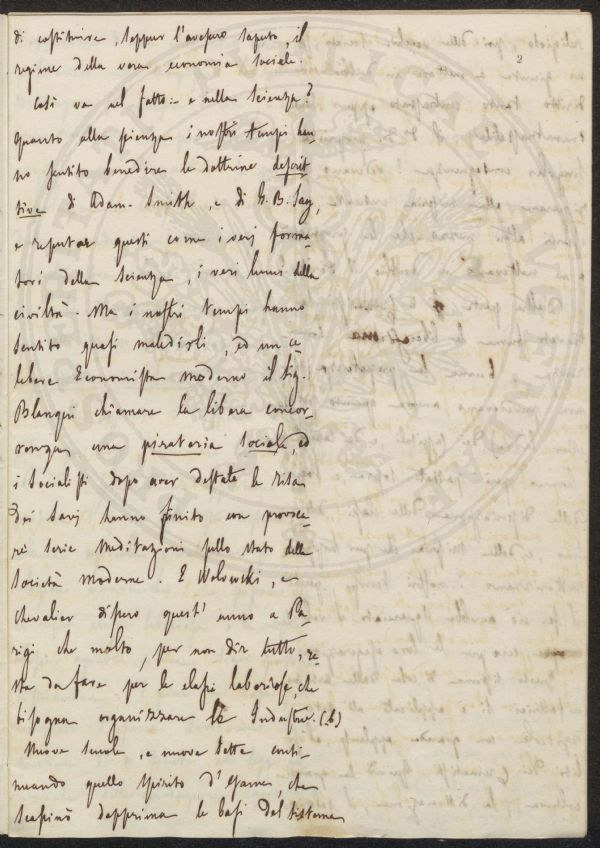 2
di costituire, seppur l'avesser saputo, il
regime della vera economia sociale.
Così va nel fatto: e nella Scienza?
Quanto alla scienza i nostri tempi han-
no sentito benedire le dottrine descrit-
tive di Adam Smith, e di G. B. Say,
e reputar questi come i veri forma-
tori della Scienza, i veri lumi della
civiltà. Ma i nostri tempi hanno
sentito quasi maledirli, ed un ce-
lebere Economista moderno il Sig.
Blanqui chiamare la libera concor-
renza una pirateria sociale, ed
i Socialisti dopo aver destate le risa
dei Savj hanno finito con provoca-
re serie meditazioni sullo stato della
Società moderne. E Wolowski, e
Chevalier dissero quest'anno a Pa-
rigi che molto, per non dir tutto, re-
sta da fare per le classi laboriose, che
bisogna organizzare le Industrie. (b)
Nuove scuole, e nuove Sette conti-
nuando quello spirito d'esame, che
scassinò dapprima le basi del sistema